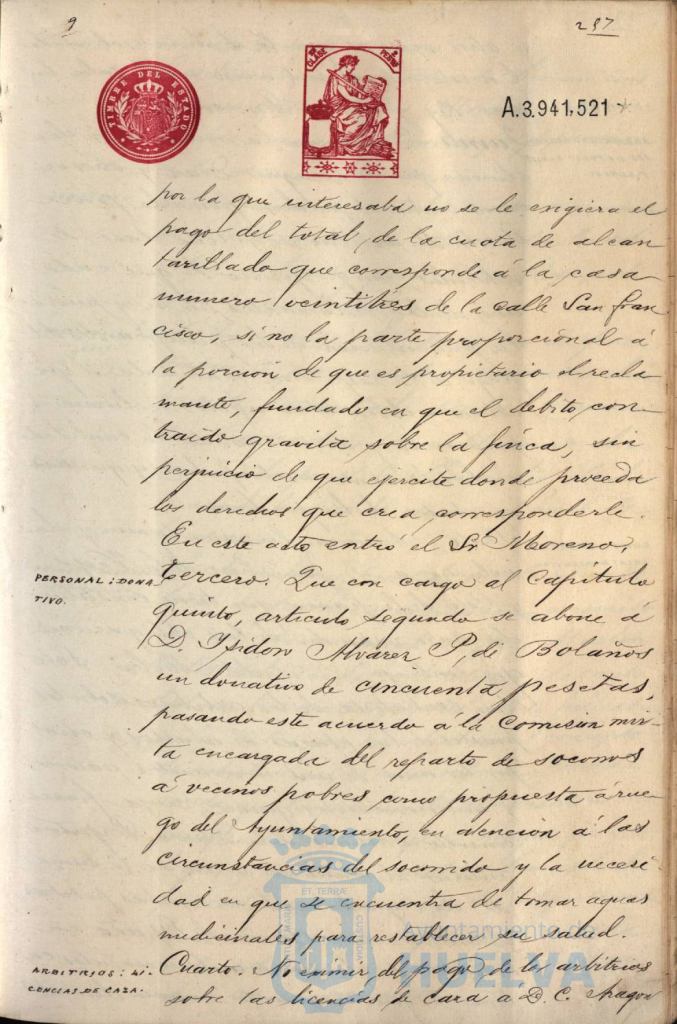 9
257
TIMBRE DEL ESTADO
CLASE
A.3.941,521
por la que interesaba no se le exigiera el
pago del total, de la cuota de alcan
tarillado que corresponde á la casa
numero veintitres de la calle San Fran
cisco, si no la parte proporcional á
la porcion de que es propietario el recla
mante, fundado en que el debito con
traido gravita sobre la finca, sin
perjuicio de que ejercite donde proceda
los derechos que crea corresponderle.
En este acto entró el Sr. Moreno.
PERSONAL: DONA
TIVO.
Tercero. Que con cargo al Capitulo
quinto, articulo segundo se abone á
D. Ysidoro Alvarez P. de Bolaños
un donativo de cincuenta pesetas,
pasando este acuerdo á la Comision mix
ta encargada del reparto de socorros
á vecinos pobres como propuesta á rue
go del Ayuntamiento, en atencion á las
circunstancias del socorrido y la necesi
dad en que se encuentra de tomar aguas
medicinales para restablecer su salud.
ARBITRIOS: LI.
CENCIAS DE CAZA.
Cuarto. No eximir del pago de los arbitrios
sobre las licencias de caza a D. C. Aragon
Ayuntamiento de
HUELVA